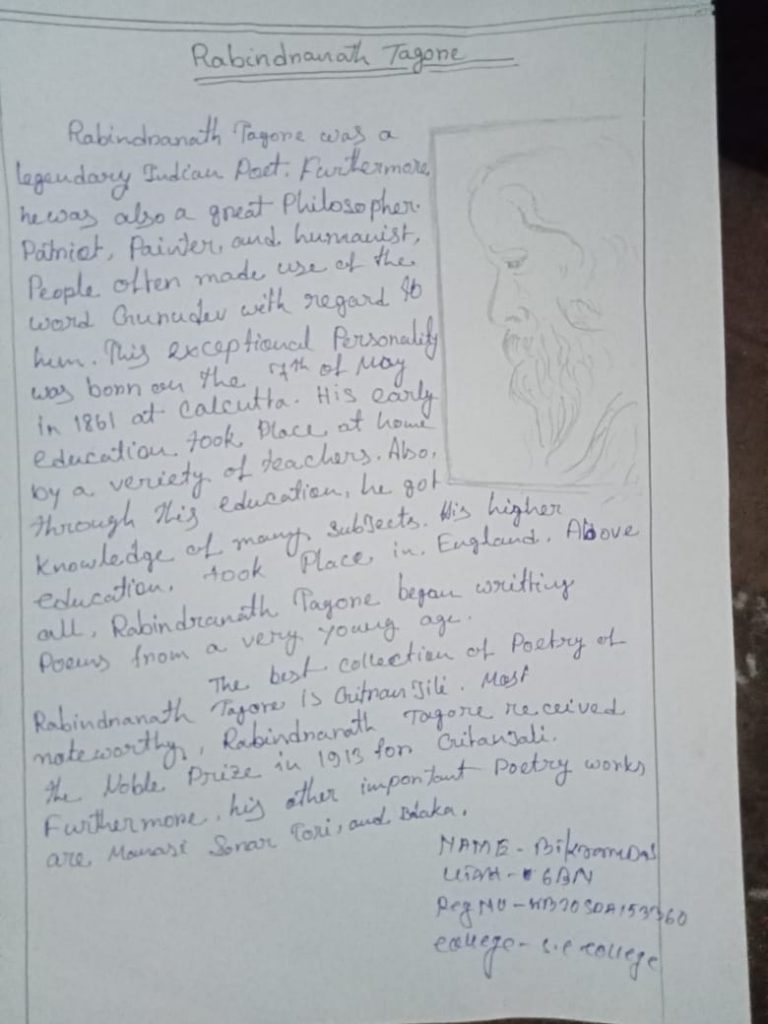 Rabindranath Tagore
Rabindranath Tagore was a
legendary Indian Poet. Furthermore,
he was also a great Philosopher.
Patriot, Painter, and humanist,
People often made use of the
word Gurudev with regard to
him. This exceptional Personality
was born on the 7th of May
in 1861 at Calcutta. His early
education took Place at home
by a veriety of teachers. Also,
through this education, he got
knowledge of many subjects. His higher
education, took Place in England. Above
all, Rabindranath Tagore began writting
Poems from a very young age.
The best collection of Poetry of
Rabindranath Tagore is . Most
noteworthy, Rabindranath Tagore received
the Noble Prize in 1913 for Gitanjali.
Furthermore, his other important Poetry works
are, Manasi Sonar Tori, and Balaka.
NAME - Bikram Das
- 6BN
Reg NO -
College - S.C College